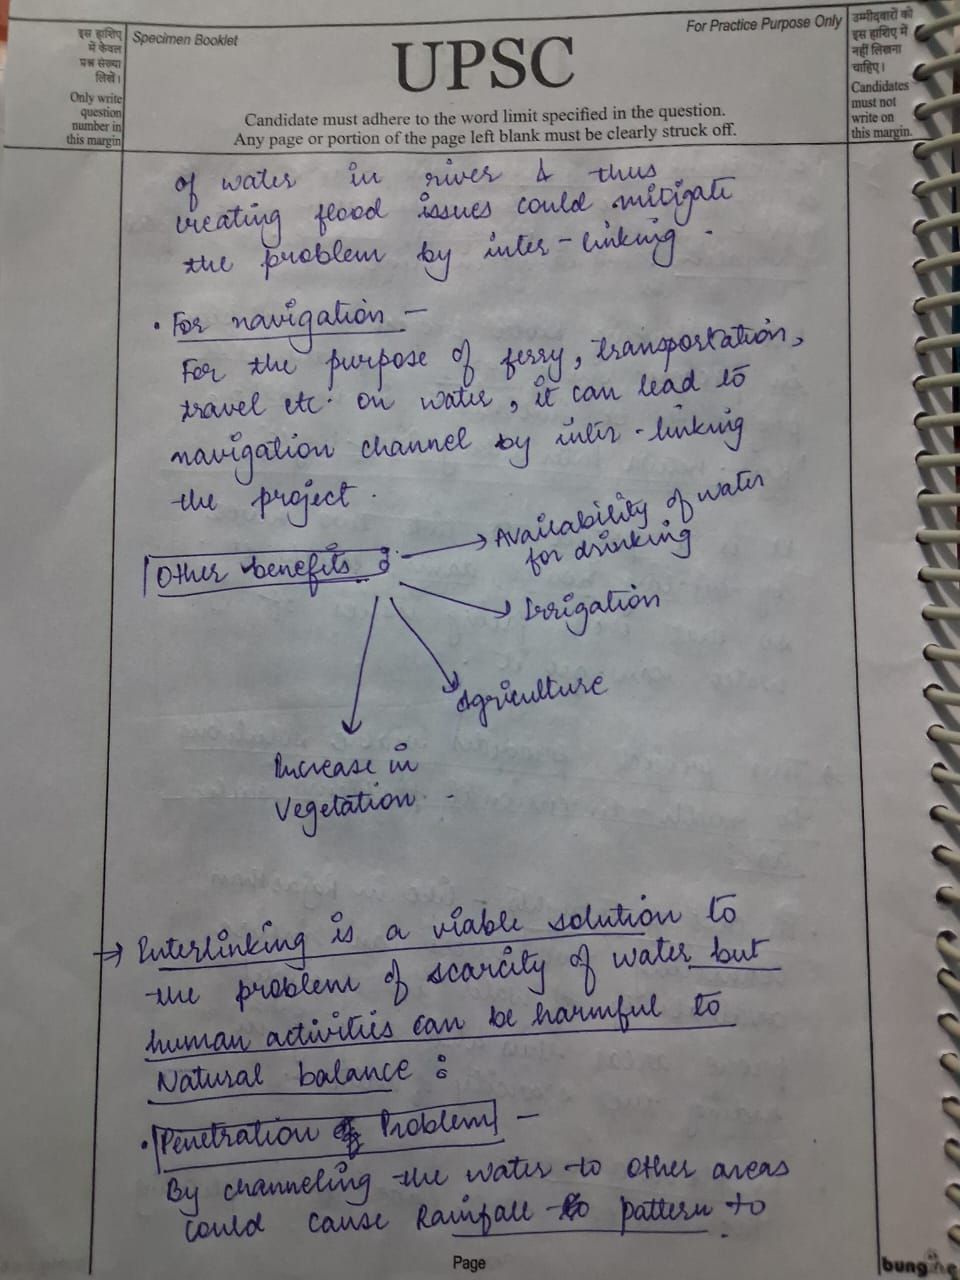 इस हाशिए
में केवल
प्रश्न संख्या
लिखें।
Only write
question
number in
this margin
Specimen Booklet
For Practice Purpose Only
UPSC
Candidate must adhere to the word limit specified in the question.
Any page or portion of the page left blank must be clearly struck off.
उम्मीदवारों को
इस हाशिए में
नहीं लिखना
चाहिए।
Candidates
must not
write on
this margin.
of water in river & thus
creating flood issues could mitigate
the problem by inter-linking.
• For navigation -
For the purpose of ferry, transportation,
travel etc. on water, it can lead to
navigation channel by inter-linking
the project.
Other benefits :
→ Availability of water
for drinking
→ Irrigation
Agriculture
Increase in
Vegetation. -
→ Interlinking is a viable solution to
the problem of scarcity of water but
human activities can be harmful to
Natural balance :
• Penetration Problem -
By channeling the water to other areas
could cause Rainfall pattern to
Page